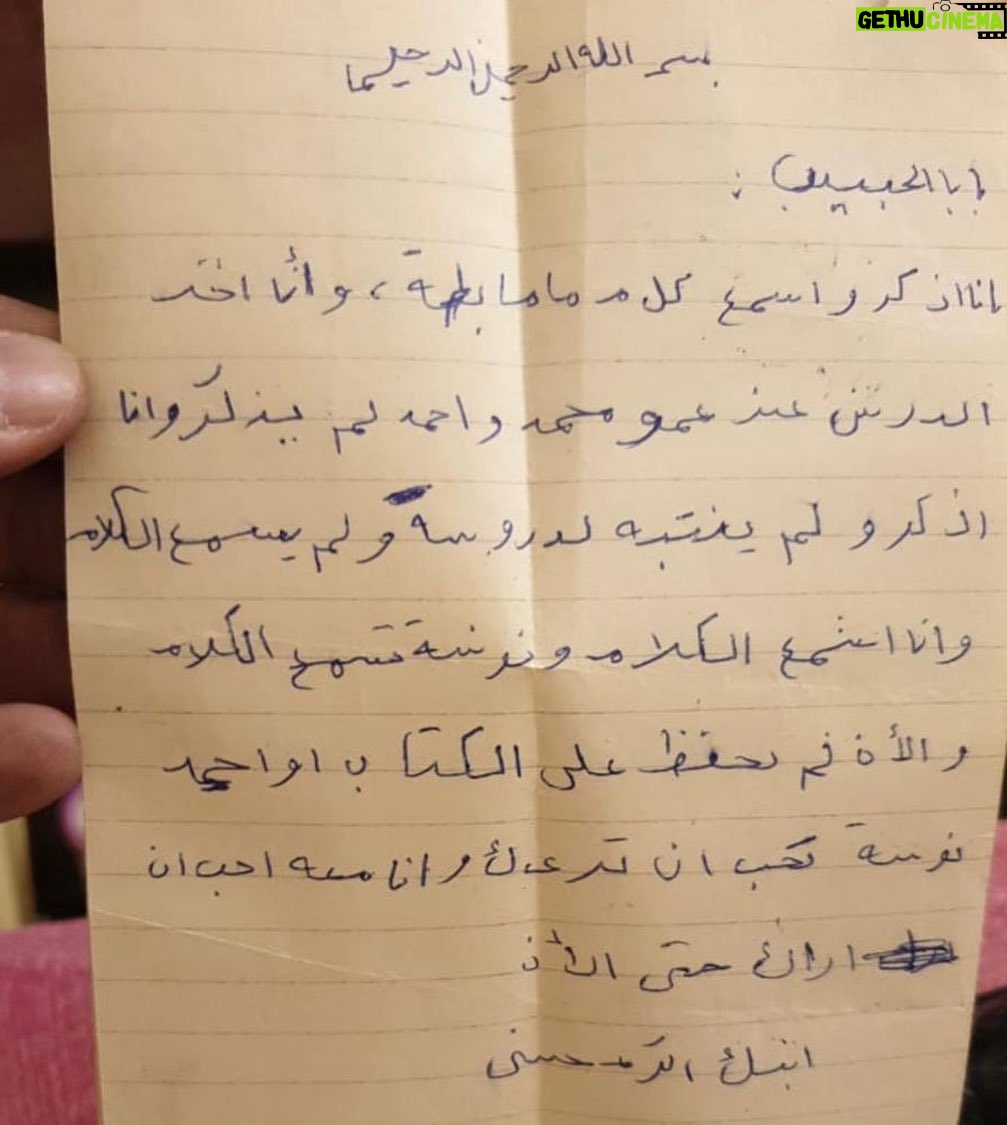 GETHUCINEMA
بسم الله الرحمن الرحيم
بابا الحبيب :
انا اذكر و اسمع كلام ماما بطة ، وأنا اخذ
الدرس عند عمو محمد و احمد لم يذكر وانا
اذكر و لم ينتبه لدروسة و لم يسمع الكلام
وانا اسمع الكلام ونوسة تسمع الكلام
و الأن لم تحفظ على الكتاب او احمد
نوسة تحب ان تدعك و انا احب ان
اراك حتى الأن
ابنك حسنى